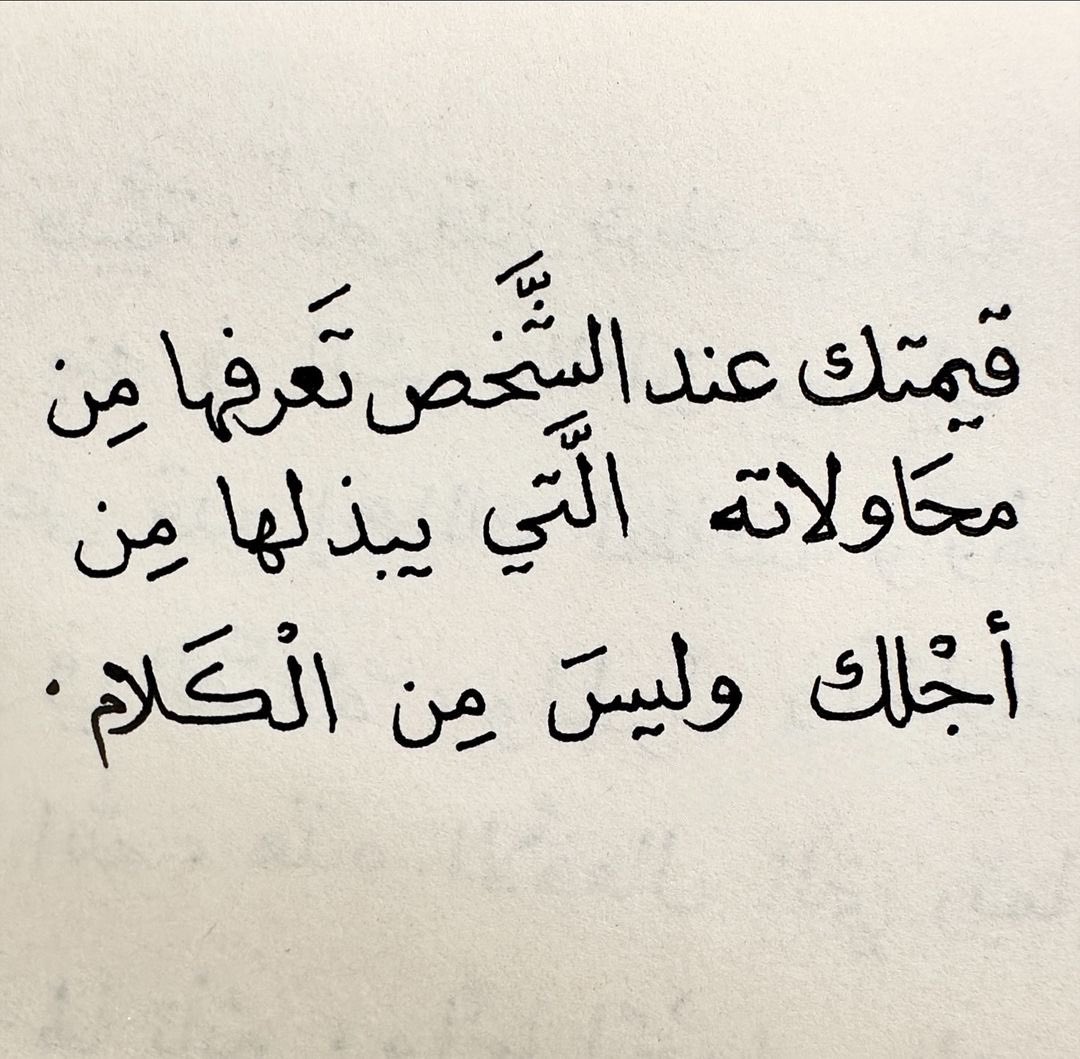 قيمتك عند الشَّخص تَعرفها مِن
محَاولاته الَّتي يبذلها مِن
أجْلك وليسَ مِن الْكَلام.